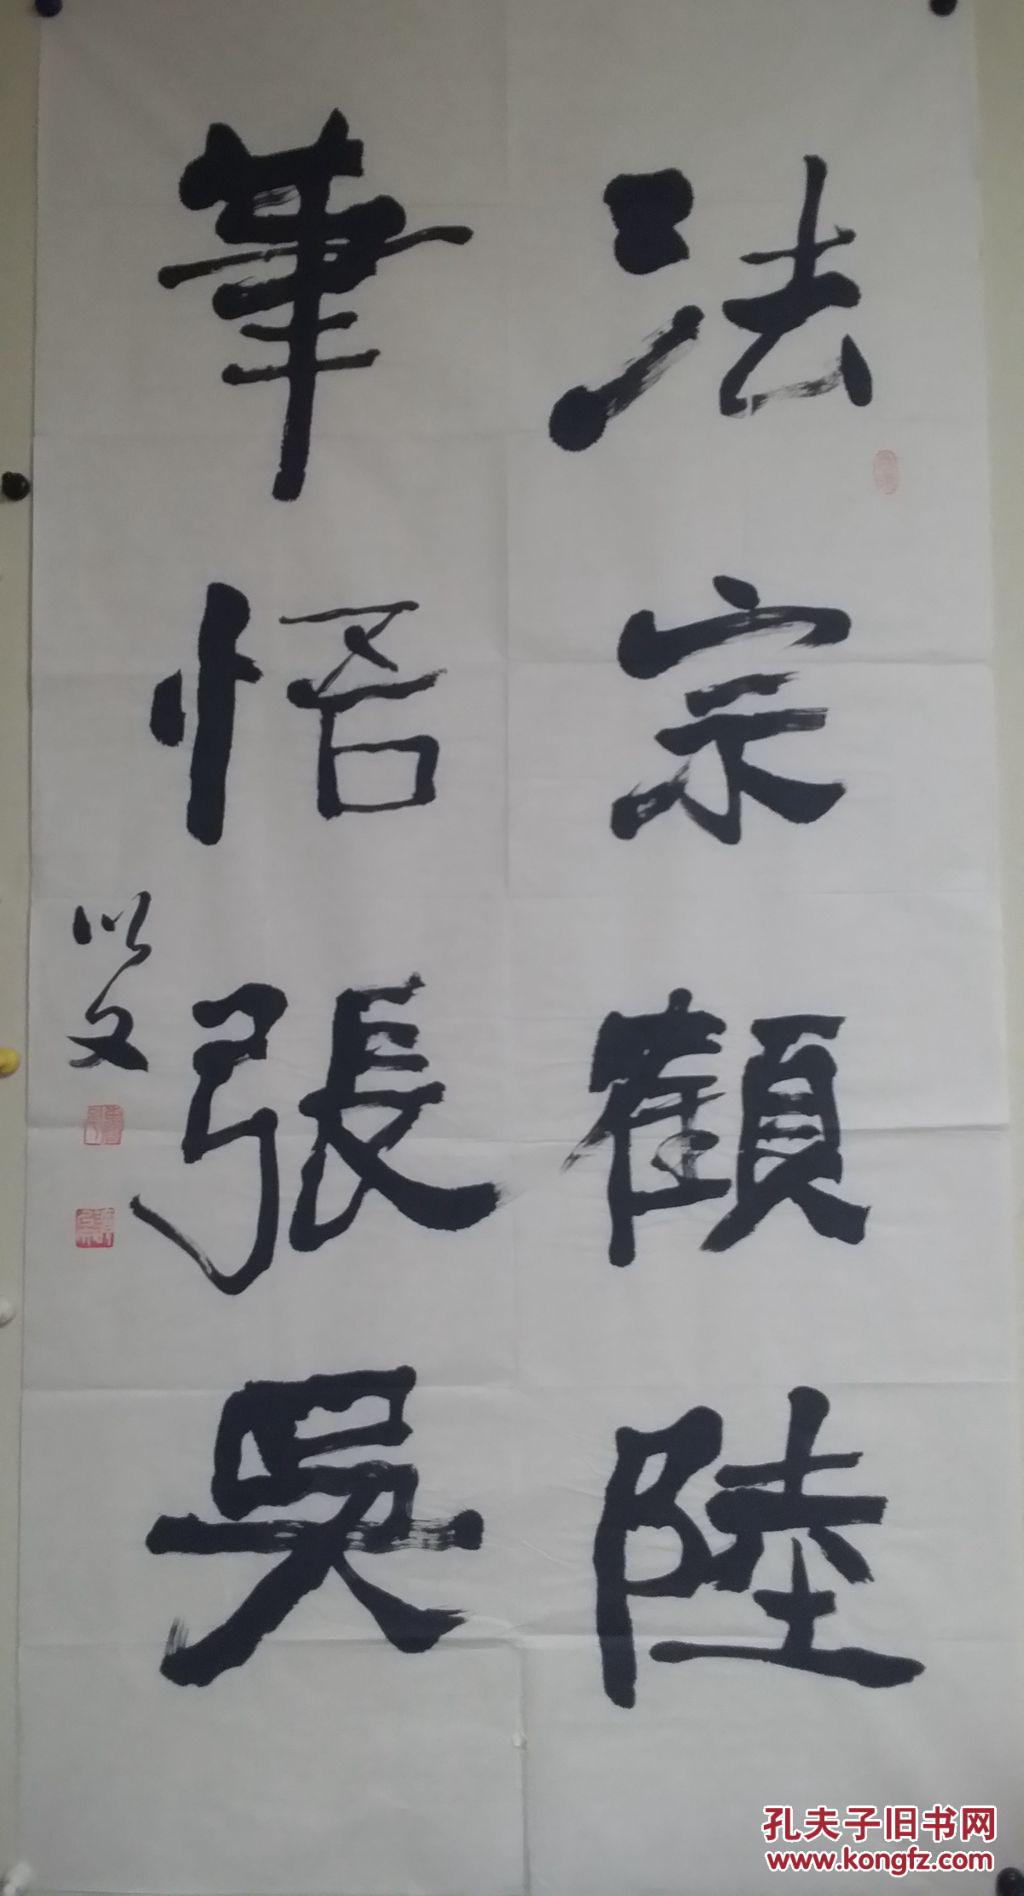 法宗顧陸
筆悟張吳
以文
孔夫子旧书网
www.kongfz.com